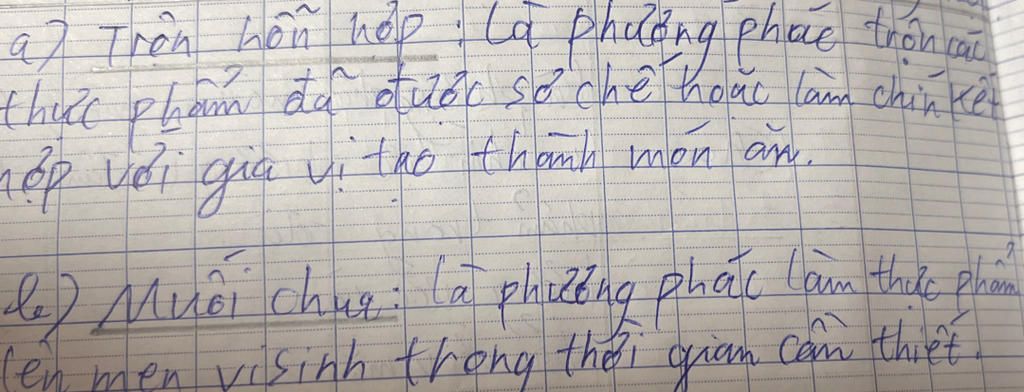 a) Trộn hỗn hợp: Là phương phác trộn các
thực phẩm đã được sơ chế hoặc làm chín kết
hợp với gia vị tạo thành món ăn.
b) Muối chua: là phương phác làm thực phẩm
lên men vi sinh trong thời gian cần thiết.